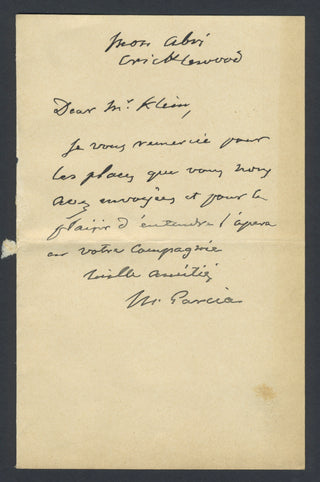 Mon Abri
Cricklewood
Dear Mr Klein,
Je vous remercie pour
les places que vous nous
avez envoyées et pour le
plaisir d'entendre l'opera
en votre Compagnie
Mille amitiés
M. Garcia